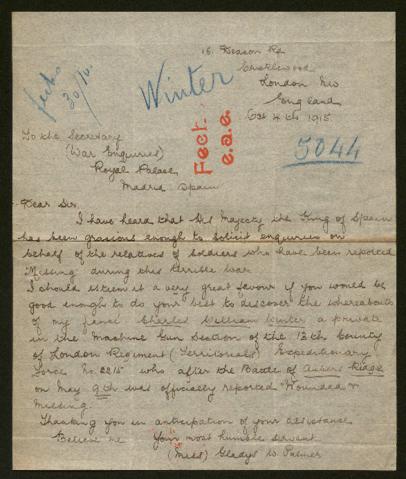 15. Deacon Rd
Cricklewood
London NW
England
Oct 4th 1915
fecho
30/10.
Winter
Fech.
e.a.e.
5044
To the Secretary
(War Enquiries)
Royal Palace
Madrid Spain
Dear Sir.
I have heard that His Majesty the King of Spain
has been gracious enough to solicit enquiries on
behalf of the relatives of Soldiers who have been reported
"Missing" during this terrible war.
I should esteem it a very great favour if you would be
good enough to do your best to discover the whereabouts
of my fiancé Charles William Winter a private
in the Machine Gun Section of the 13th County
of London Regiment (Territorials) Expeditionary
Force No. 2215 who after the Battle of Aubers Ridge
on May 9th was officially reported "Wounded &
Missing.
Thanking you in anticipation of your assistance
Believe me Your most humble servant
(Miss) Gladys W Palmer